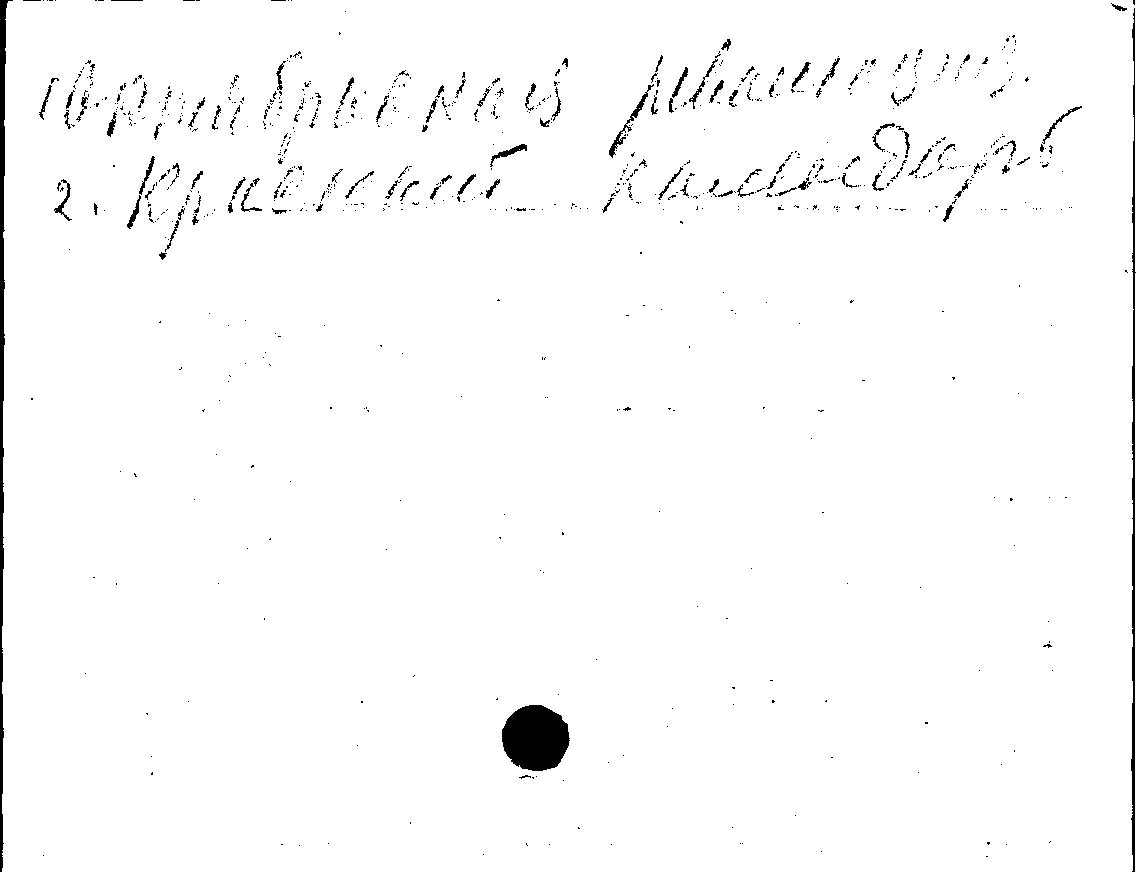 1 Октябрьская революция.
2. Красный календарь